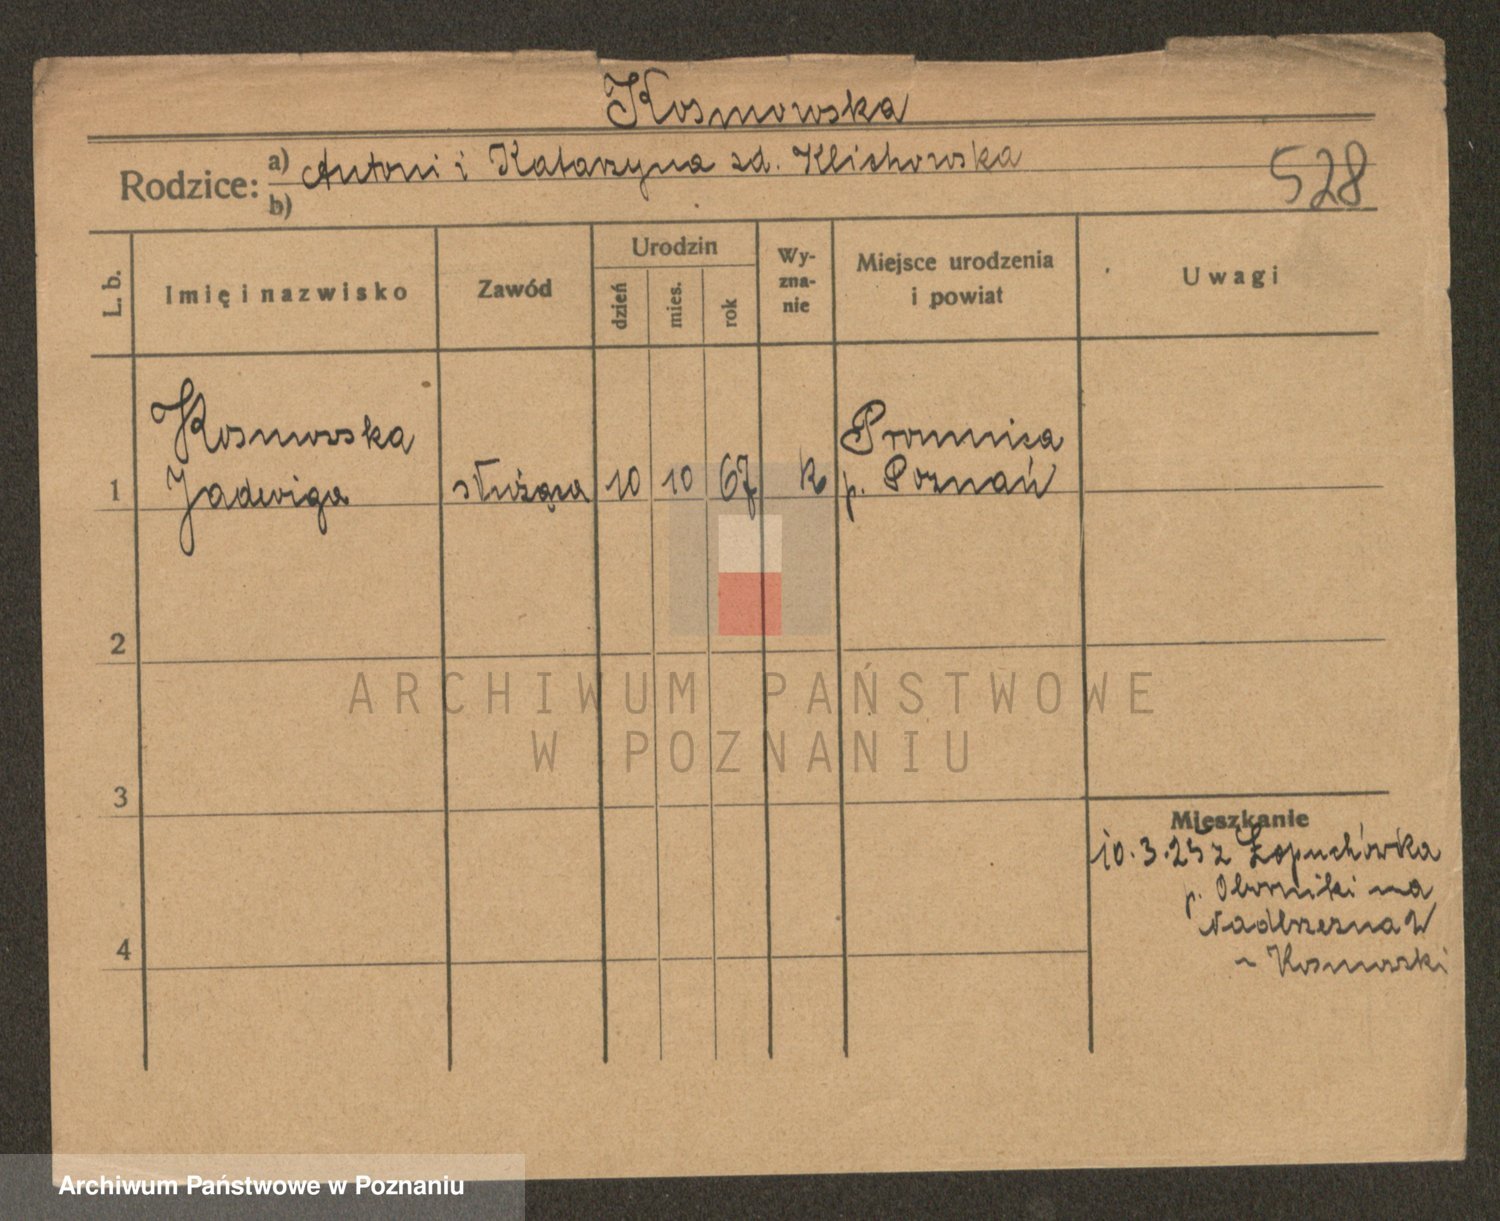 Kosmowska
Rodzice: a) Antoni i Katarzyna zd. Klichowska
b)
528
L. b.
Imię i nazwisko
Zawód
Urodzin
dzień
mies.
rok
Wy-
zna-
nie
Miejsce urodzenia
i powiat
Uwagi
Kosmowska
Promnica
1 Jadwiga służąca 10 10 67 k p. Poznań
2
ARCHIWUM PAŃSTWOWE
W POZNANIU
3
Mieszkanie
10.3.25 z Łopuchówka
p. Oborniki na
Nadbrzeżna 2
~ Kosmowski
4
Archiwum Państwowe w Poznaniu